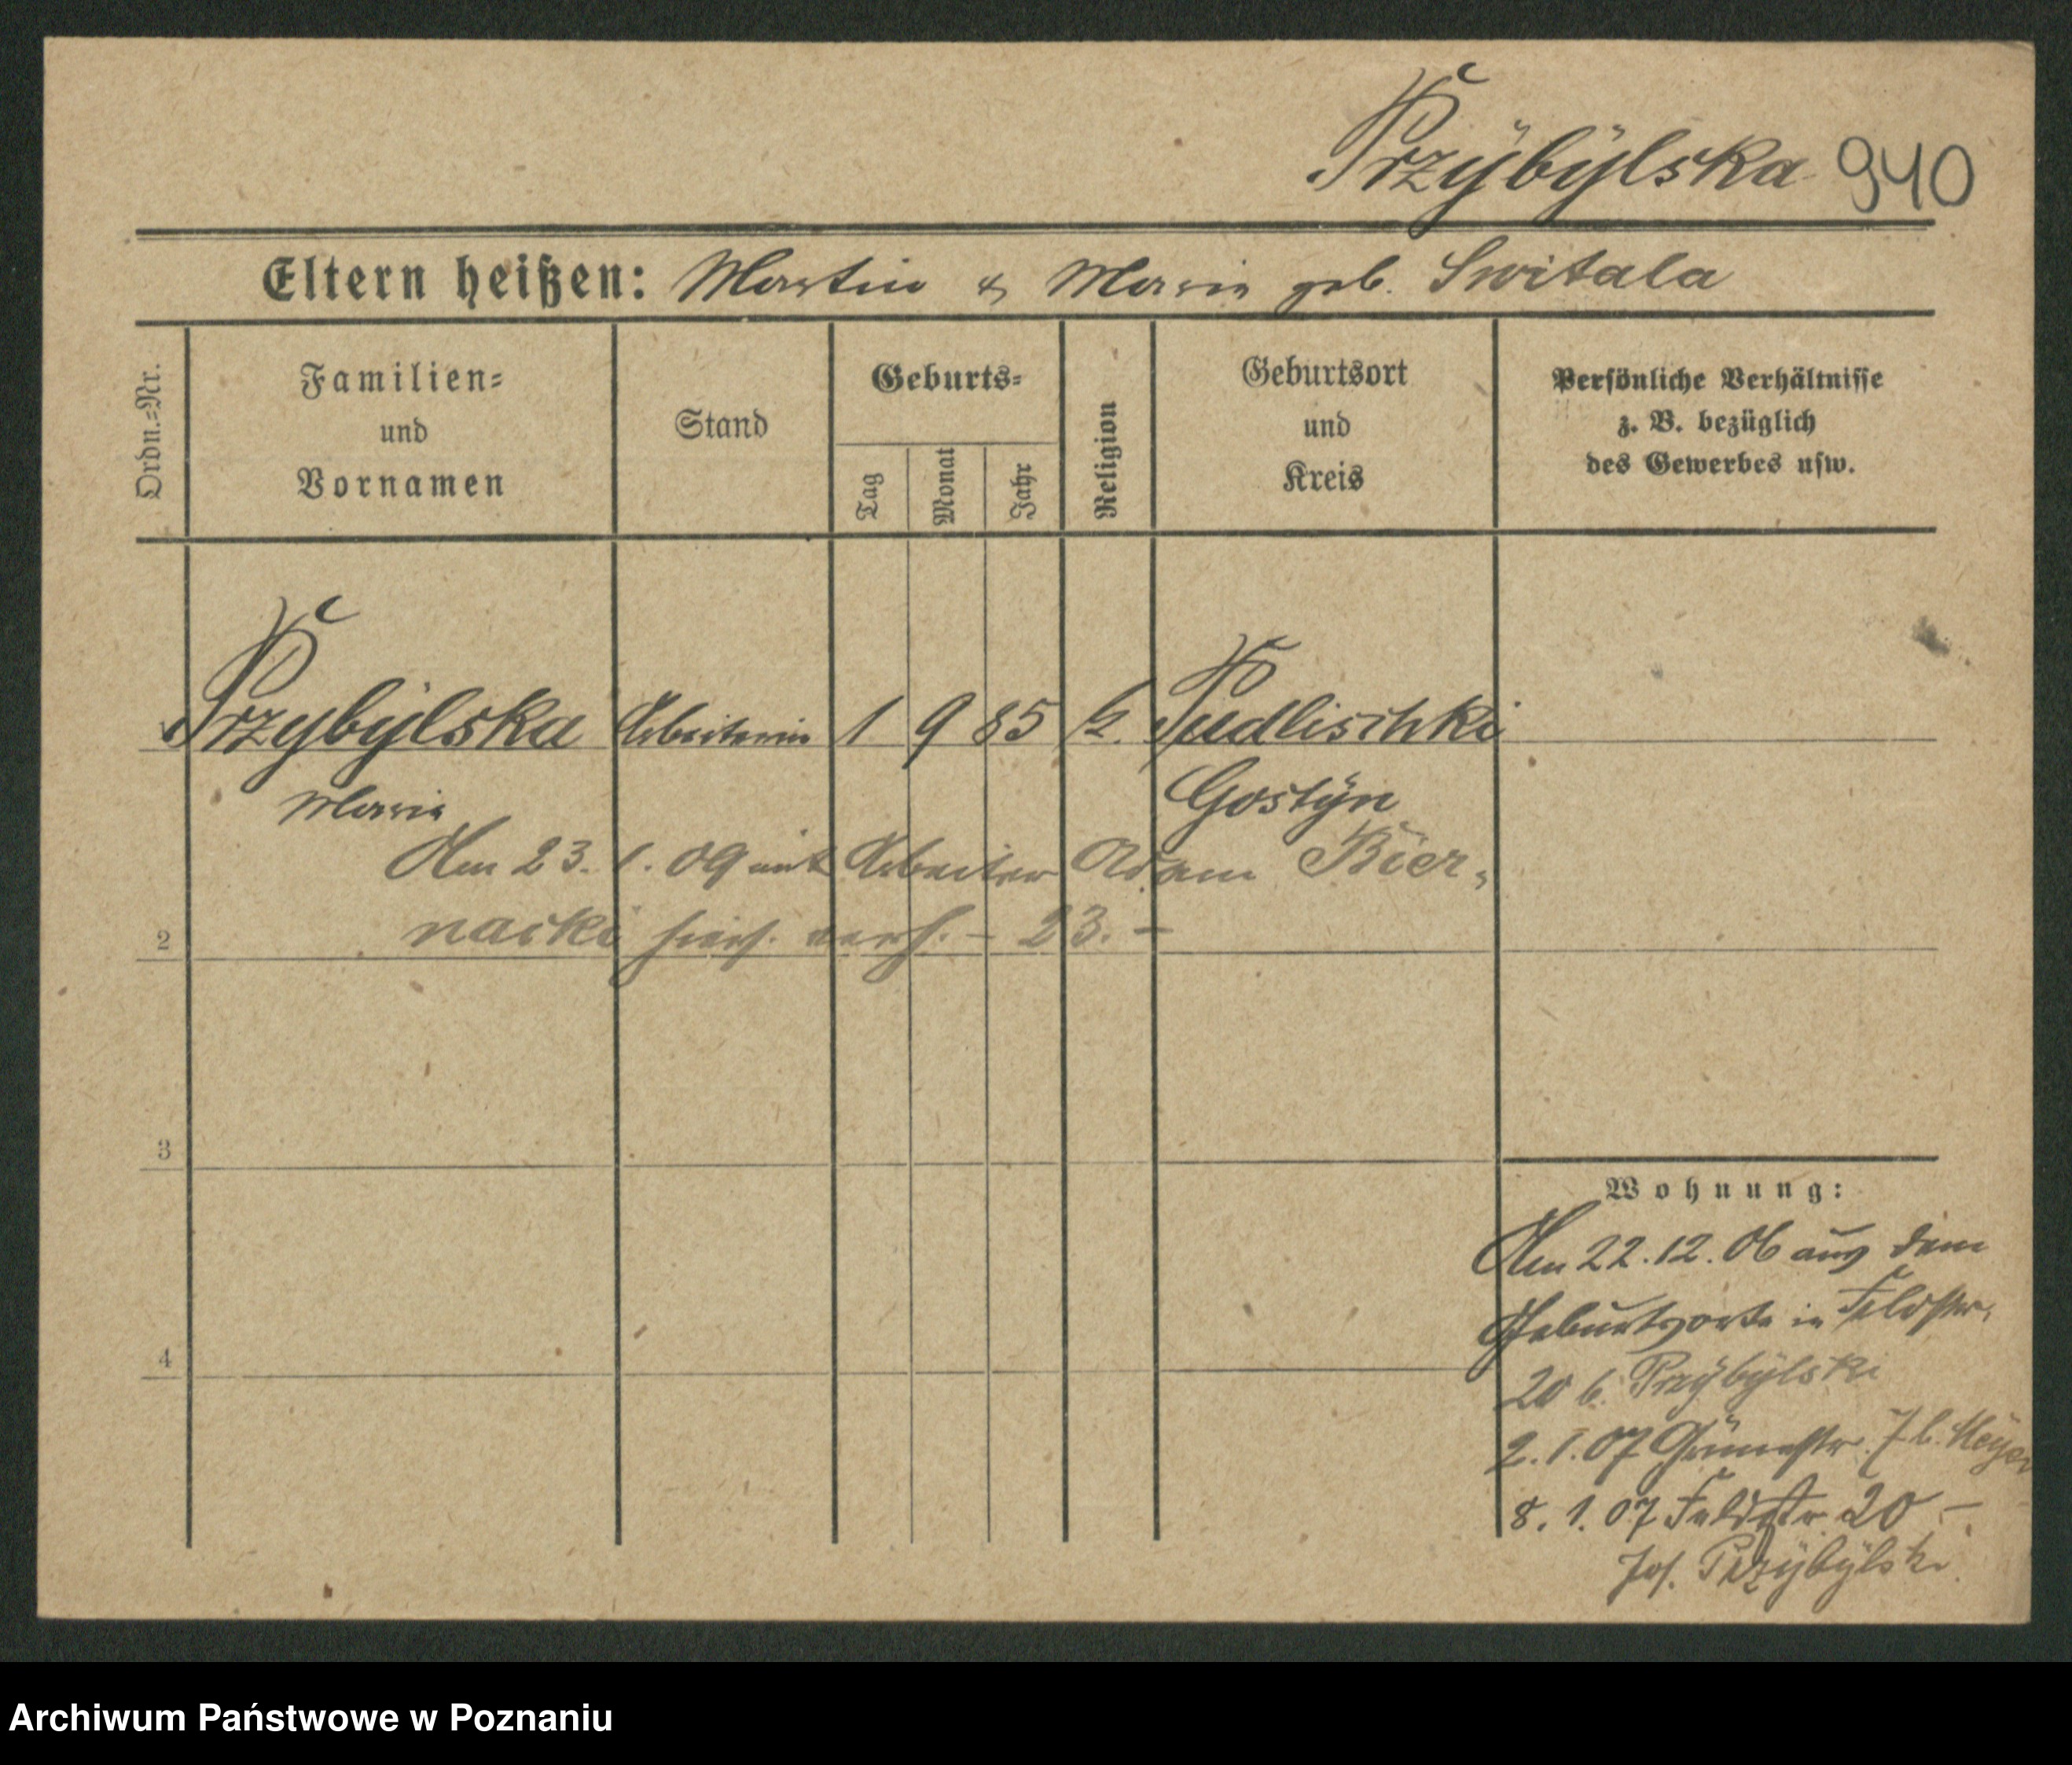 Przÿbÿlska 940
Eltern heißen: Martin & Marie geb. Switala
Ordn.=Nr.
Familien= und Vornamen
Stand
Geburts=
Tag
Monat
Jahr
Religion
Geburtsort und Kreis
Persönliche Verhältnisse
z. B. bezüglich
des Gewerbes usw.
Przybÿlska Arbeiterin 1 9 85 k. Pudlischki
Marie Gostÿn
Am 23. 1. 09 mit Arbeiter Adam Bier-
nacki hier verh. – 23. –
2
3
4
Wohnung:
Am 22.12.06 aus dem
Geburtsorte in Feldstr.
20 b. Przÿbÿlski
2.1.07 Grünestr. 7 b. Meyer
8. 1. 07 Feldstr 20 –
Jos. Przÿbÿlski.
Archiwum Państwowe w Poznaniu